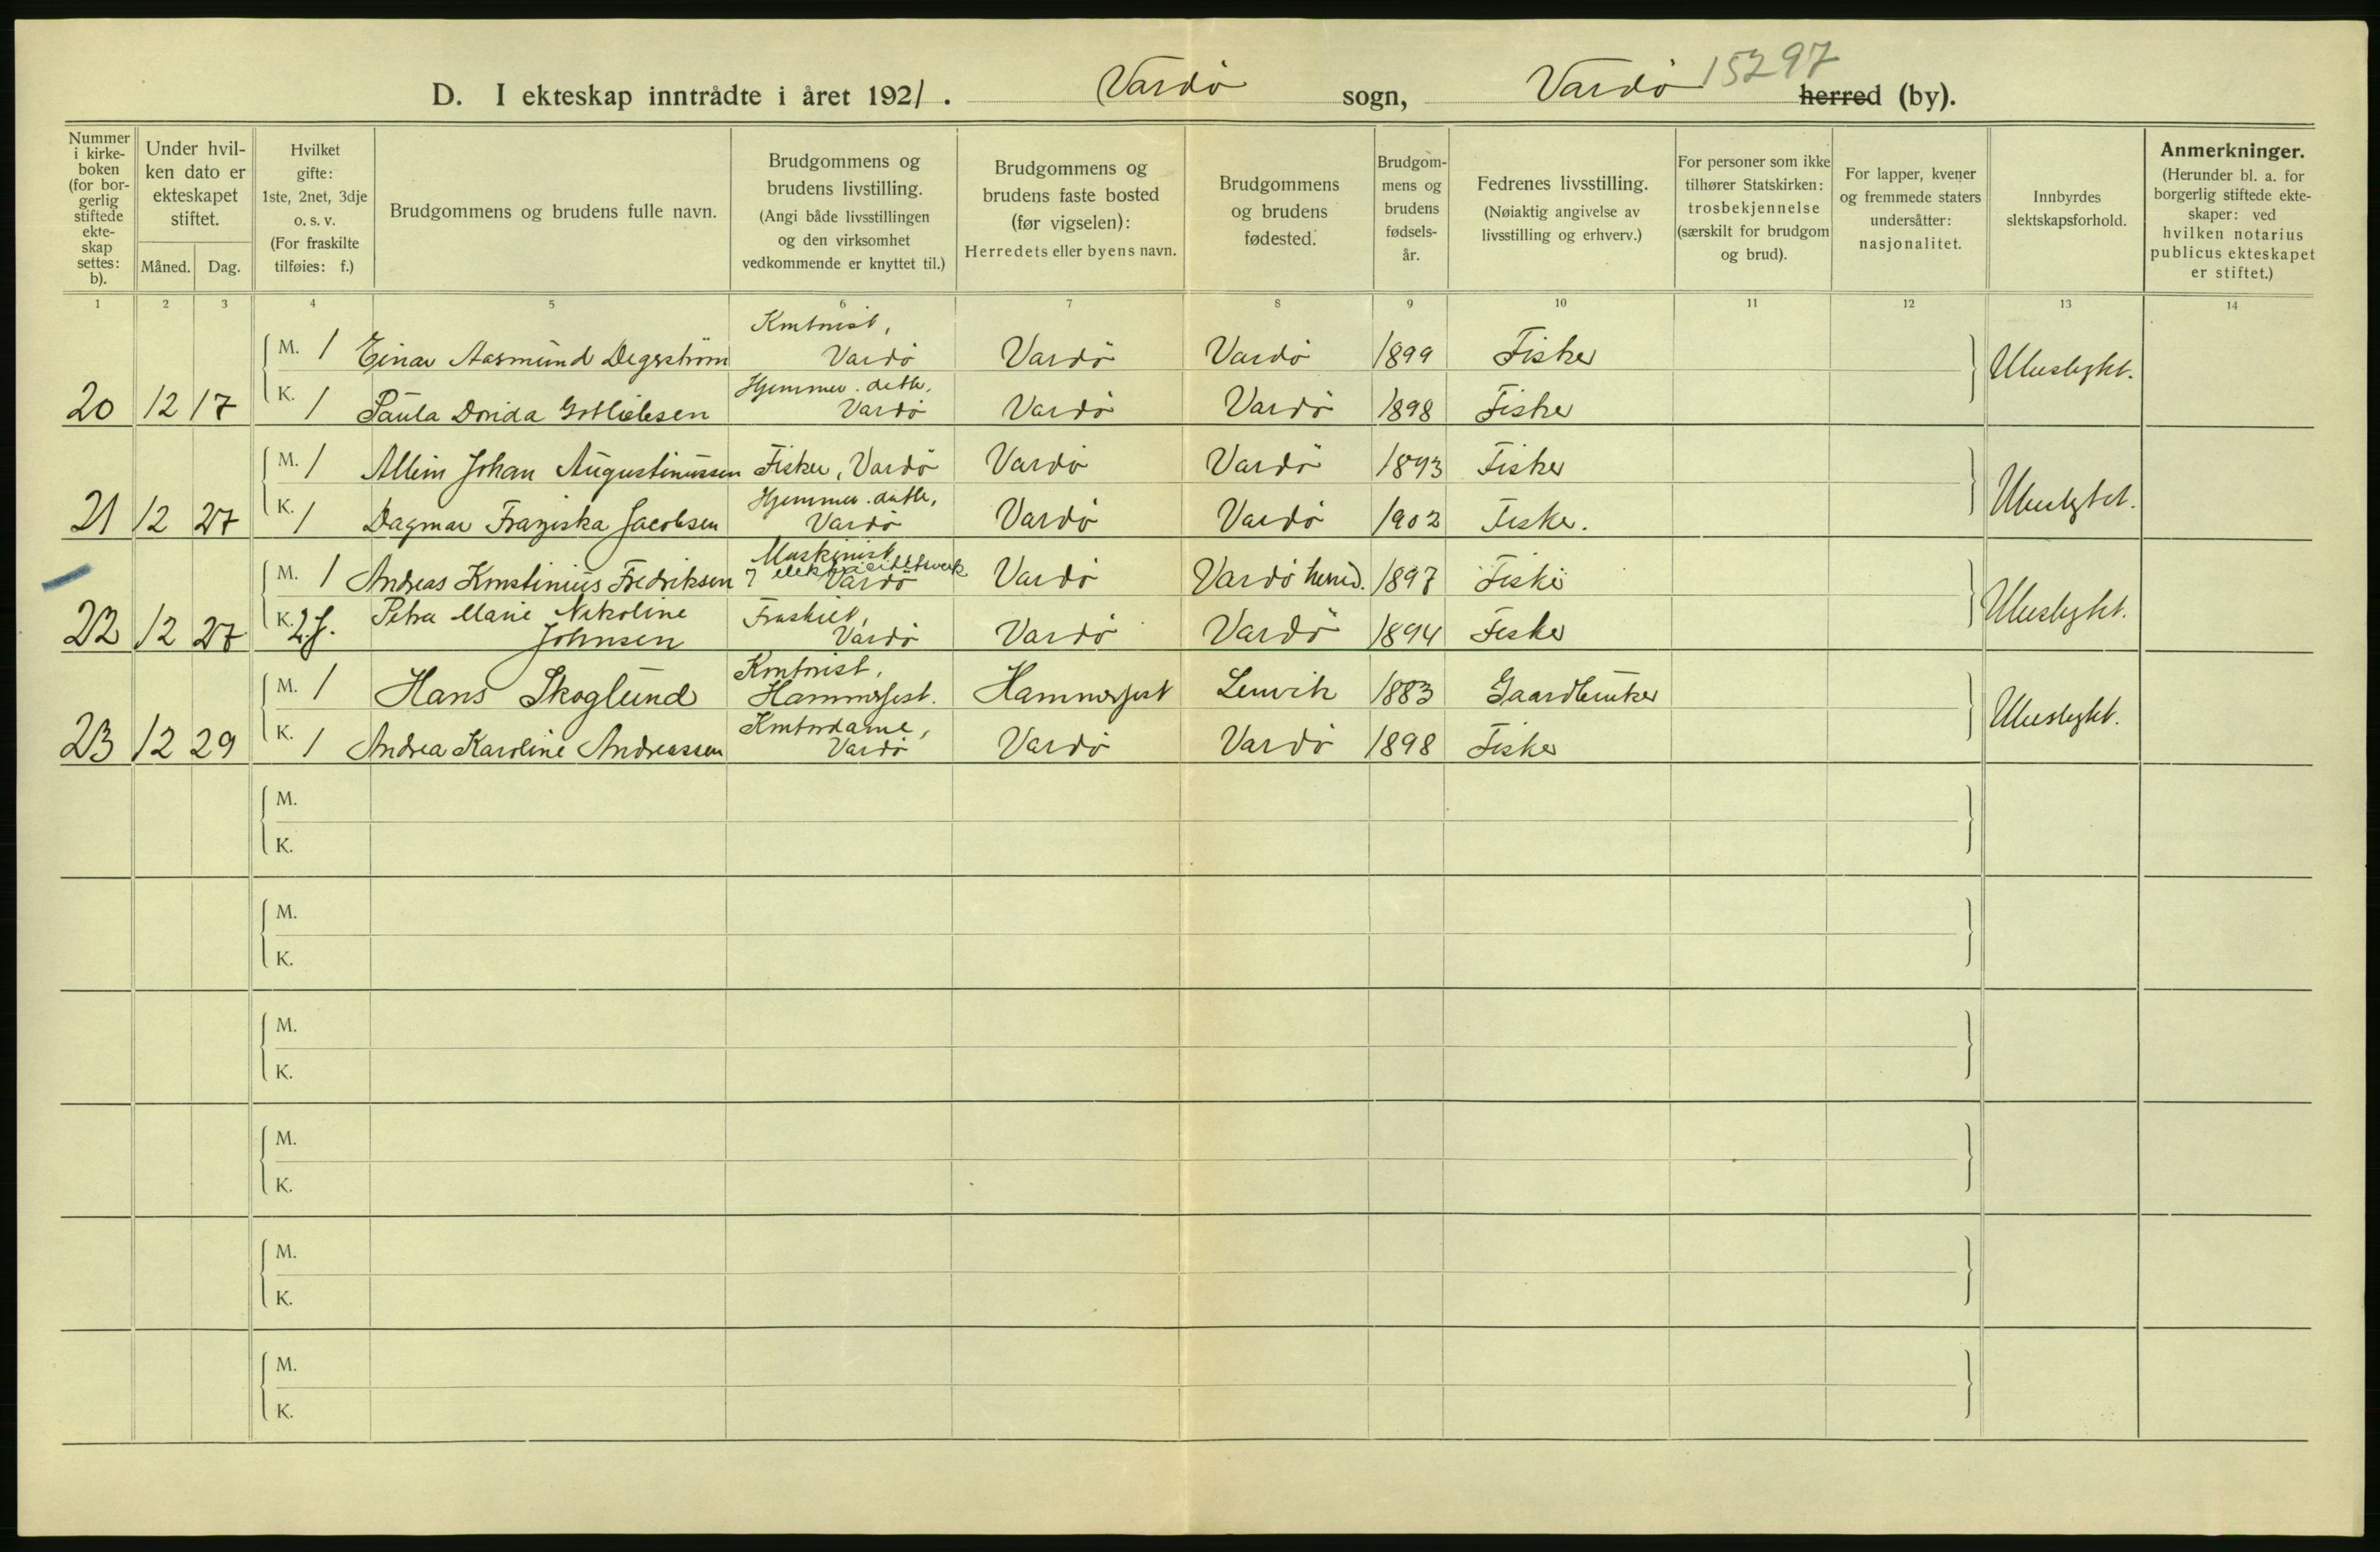 15297
D. I ekteskap inntrådte i året 1921. Vardö sogn, Vardö herred (by).
Nummer i kirke-boken (for bor-gerlig stiftede ekte-skap settes: b).
Under hvil-ken dato er ekteskapet stiftet.
Måned. Dag.
Hvilket gifte: 1ste, 2net, 3dje o. s. v. (For fraskilte tilføies: f.)
Brudgommens og brudens fulle navn.
Brudgommens og brudens livstilling. (Angi både livsstillingen og den virksomhet vedkommende er knyttet til.)
Brudgommens og brudens faste bosted (før vigselen): Herredets eller byens navn.
Brudgommens og brudens fødested.
Brudgom-mens og brudens fødsels-år.
Fedrenes livsstilling. (Nøiaktig angivelse av livsstilling og erhverv.)
For personer som ikke tilhører Statskirken: trosbekjennelse (særskilt for brudgom og brud).
For lapper, kvener og fremmede staters undersåtter: nasjonalitet.
Innbyrdes slektskapsforhold.
Anmerkninger. (Herunder bl. a. for borgerlig stiftede ekte-skaper: ved hvilken notarius publicus ekteskapet er stiftet.)
1 2 3 4 5 6 7 8 9 10 11 12 13 14
M. 1 Einar Aasmund Degerström Kontorist, Vardö Vardö Vardö 1899 Fisker Ubeslegtet.
20 12 17 K. 1 Paula Dorida Gottliebsen Hjemmev. datter, Vardö Vardö Vardö 1898 Fisker
M. 1 Johan Augustinussen Fisker, Vardö Vardö Vardö 1893 Fisker Ubeslegtet.
21 12 27 K. 1 Dagmar Franziska Jacobsen Hjemmev. datter, Vardö Vardö Vardö 1902 Fisker.
M. 1 Andreas Konstinius Fredriksen Maskinist v elektricitetsverk Vardö Vardö Vardö herred. 1897 Fisker Ubeslegtet.
22 12 27 K. 2 f. Petra Marie Nikoline Johnsen Fraskilt, Vardö Vardö Vardö 1894 Fisker
M. 1 Hans Skoglund Kontorist, Hammerfest. Hammerfest Lenvik 1883 Gaardbruker Ubeslegtet.
23 12 29 K. 1 Andrea Karoline Andreassen Kontordame, Vardö Vardö Vardö 1898 Fisker
M.
K.
M.
K.
M.
K.
M.
K.
M.
K.
M.
K.